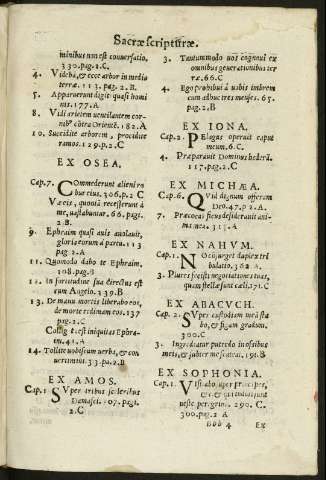 Sacræ scripturæ.
minibus non est conuersatio.
330.pag.1.C.
4. Videba, & ecce arbor in media
terræ. 113. pag. 2.B.
5. Apparuerunt digiti quasi homi
nis. 177.A
8. Vidi arietem ventilantem cornibus
cōtra Oriente. 182.A
10. Succidite arborem, præcidite
ramos. 129.p.2.C
EX OSEA.
Cap.7. Commederunt alieni ro
bur eius, 306.p.2.C
Væ eis, quoniā recesserunt á
me, vastabuntur. 66.pagi.
2.B.
9. Ephraim quasi auis auolauit,
gloria eorum á partu. 113
pag.2.A
11. Quomodo dabo te Ephraim.
108.pag.B
12. in fortitudine sua directus est
cum Angelo. 239.B
13. De manu mortis liberabo eos,
de morte redimam eos. 137
pag.2.C
Colligata est iniquitas Ephra
im. 41.A
14. Tollite vobiscum verba, & con
uertimini. 333.pa.2.B
EX AMOS.
Cap.1 Super tribus sceleribus
Damasci. 107.pagi.
2.C
3. Tantummodo vos cognoui ex
omnibus generationibus ter
ræ. 66.C
4. Ego prohibui á vobis imbrem
cum adhuc tres menses. 65.
pag.2.B
EX IONA.
Cap.2. Pelagus operuit caput
meum. 6.C.
4. Præparauit Dominus hederā.
117.pag.2.C
EX MICHÆA.
Cap.6. Quid dignum offeram
Deo. 47.p.2.A.
7. Præcocas ficus desiderauit ani-
ma mea. 313.A
EX NAHVM.
Cap.1. Nō surget duplex tri
bulatio. 362.A
3. Plures fecisti negotiationes tuas,
quam stellæ sunt cæli. 171.C
EX ABACVCH.
Cap.2. Super custodiam meā sta
bo, & figam gradum.
300.C
3. Ingrediatur putredo in ossibus
meis, & subter me scateat. 191.B
EX SOPHONIA.
Cap.1. Visitabo super principes,
& super
veste peregrina. 290. C.
300.pag.2.A
DDD 4 EX